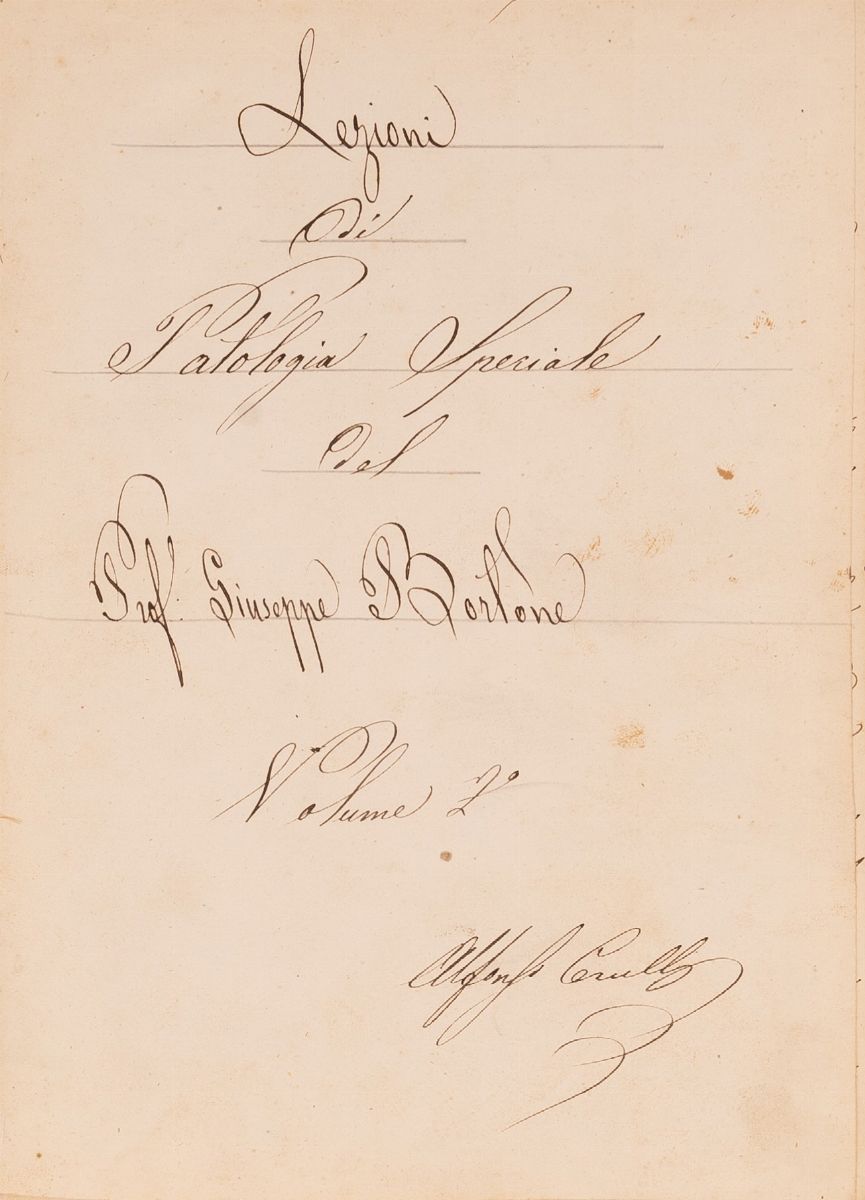 Lezioni
di
Patologia Speciale
del
Prof. Giuseppe Bortone
Volume 2°
Alfonso Cerulli